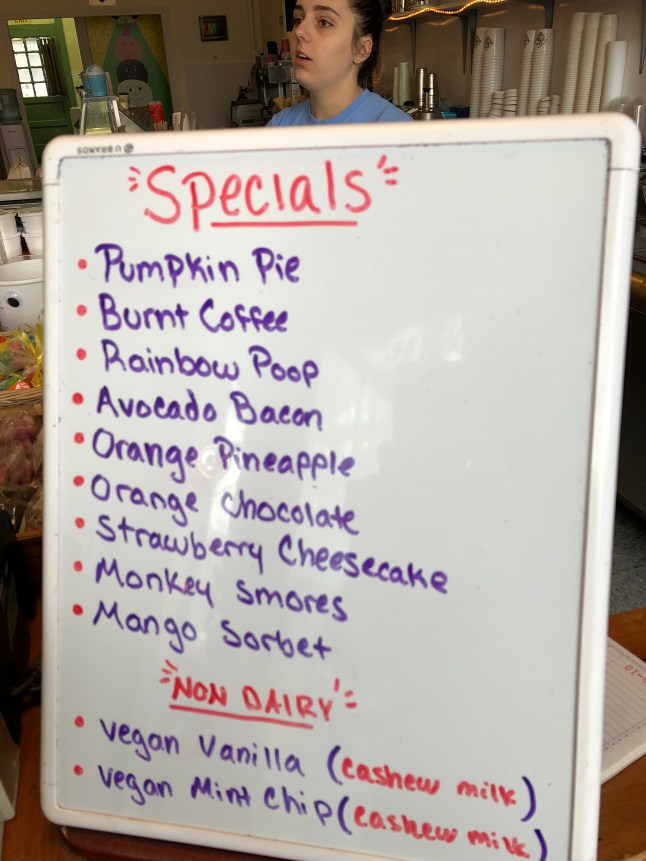 U BRANDS
Specials
• Pumpkin Pie
• Burnt Coffee
• Rainbow Poop
• Avocado Bacon
• Orange Pineapple
• Orange chocolate
• Strawberry Cheesecake
• Monkey smores
• Mango sorbet
NON DAIRY
• vegan vanilla (cashew milk)
• vegan Mint chip (cashew milk)